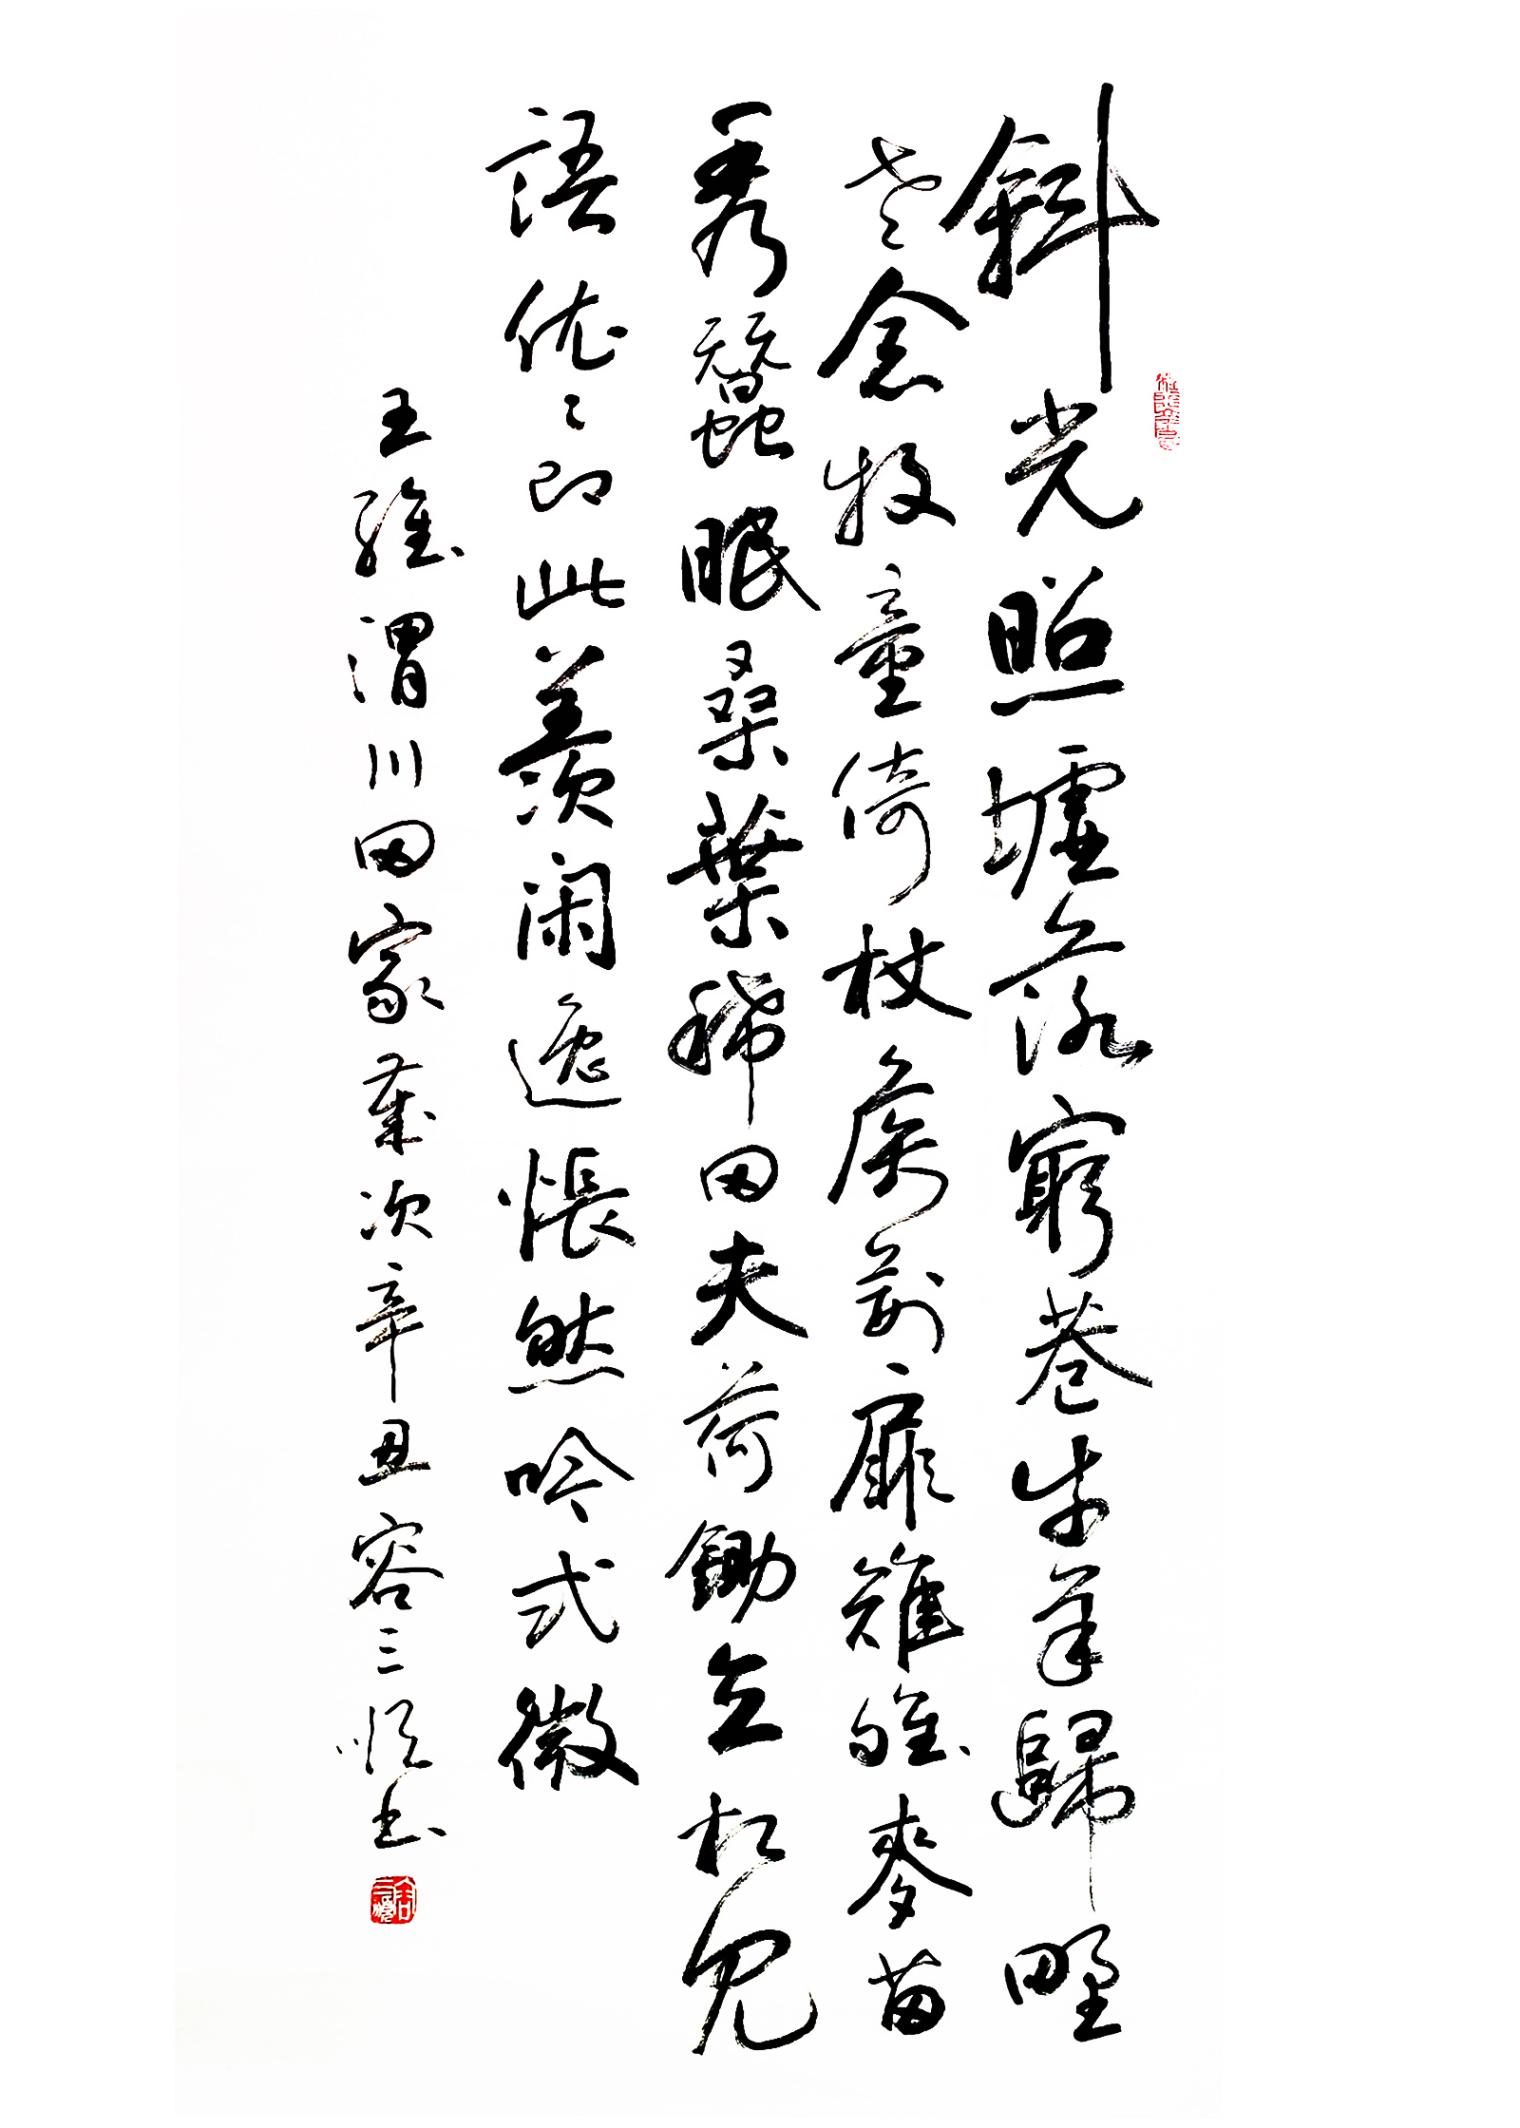 斜光照墟落窮巷牛羊歸野
老念牧童倚杖候荊扉雉雊麥苗
秀蠶眠桑葉稀田夫荷鋤立相見
語依々即此羨闲逸悵然吟式微
王維渭川田家歲次辛丑容三順书